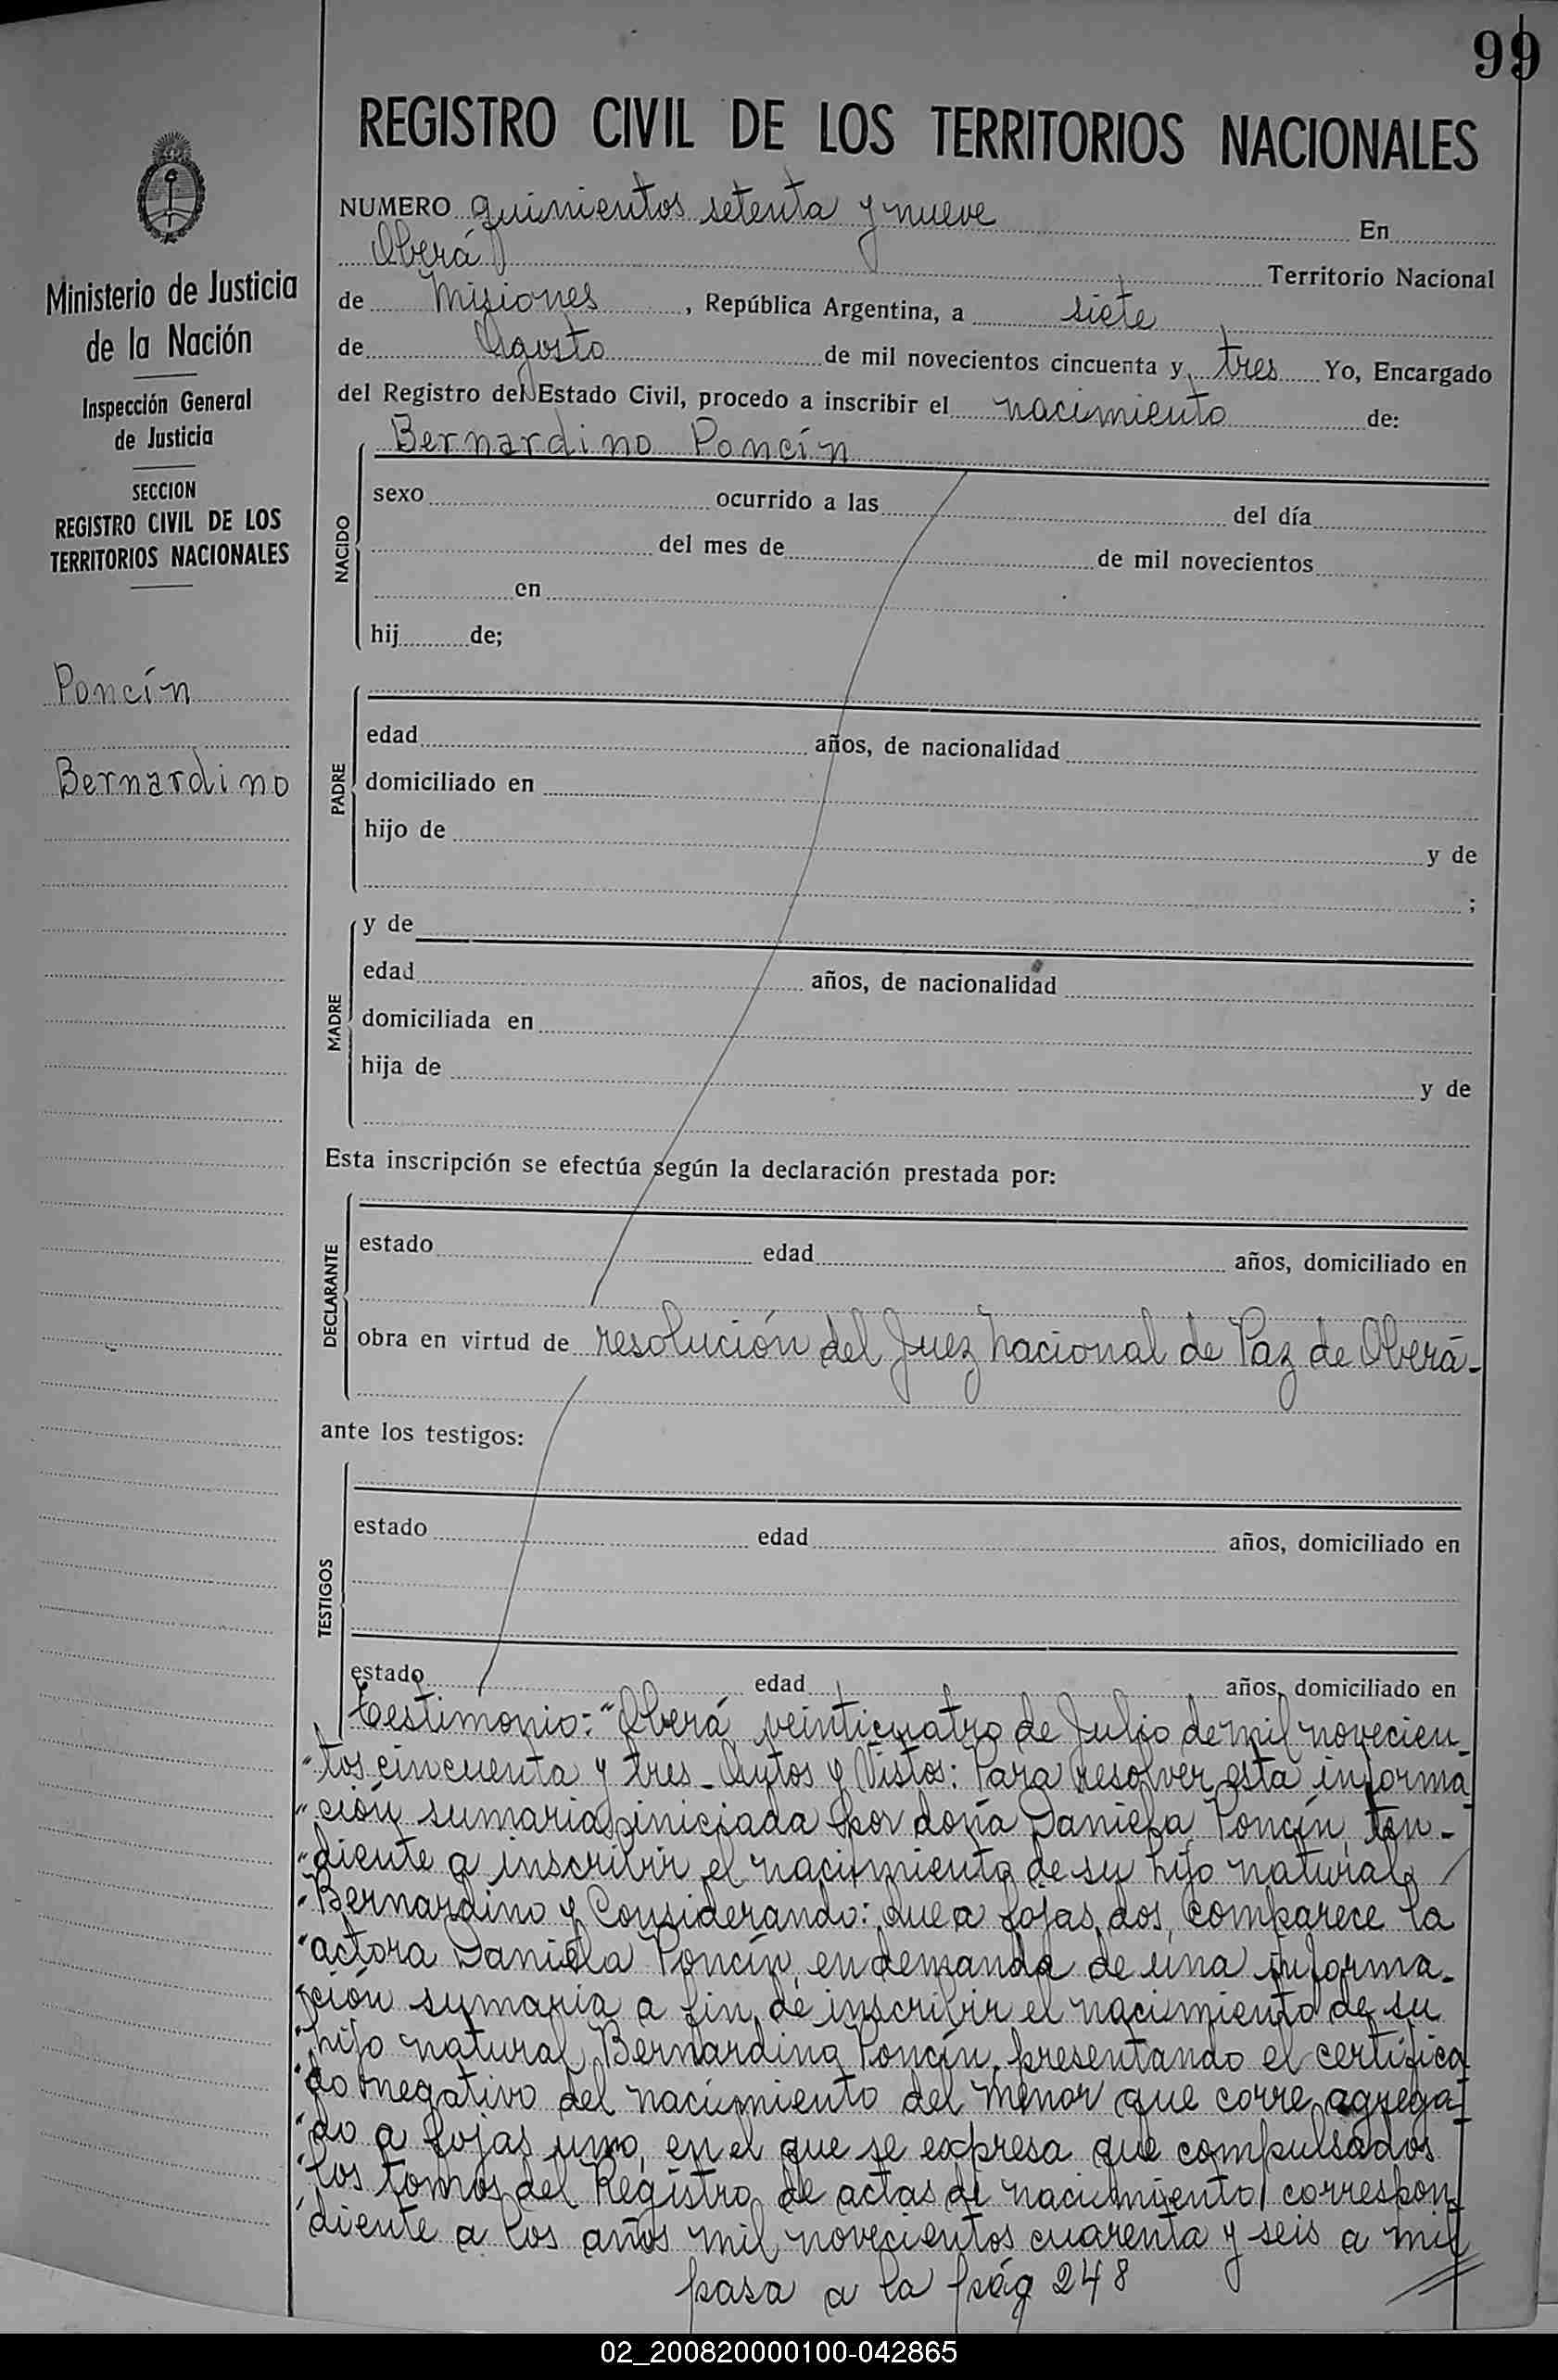 99
REGISTRO CIVIL DE LOS TERRITORIOS NACIONALES
NUMERO quinientos setenta y nueve En
Oberá Territorio Nacional
de Misiones, República Argentina, a siete
de Agosto de mil novecientos cincuenta y tres Yo, Encargado
del Registro del Estado Civil, procedo a inscribir el nacimiento de:
Bernardino Poncín
NACIDO
sexo ocurrido a las del día
del mes de de mil novecientos
en
hij de;
PADRE
edad años, de nacionalidad
domiciliado en
hijo de y de
;
MADRE
y de
edad años, de nacionalidad
domiciliada en
hija de y de
Esta inscripción se efectúa según la declaración prestada por:
DECLARANTE
estado edad años, domiciliado en
obra en virtud de resolución del Juez Nacional de Paz de Oberá-
ante los testigos:
TESTIGOS
estado edad años, domiciliado en
estado edad años, domiciliado en
Testimonio: "Oberá, veinticuatro de Julio de mil novecien-
"tos cincuenta y tres- Autos y Vistos: Para resolver esta informa
"ción sumaria iniciada por doña Daniela Poncín, ten-
"diente a inscribir el nacimiento de su hijo natural
"Bernardino y Considerando: Que a fojas dos, comparece la
"actora Daniela Poncín, en demanda de una informa-
"ción sumaria a fin de inscribir el nacimiento de su
"hijo natural Bernardino Poncín, presentando el certifica
"do negativo del nacimiento del menor que corre agrega-
"do a fojas uno, en el que se expresa que compulsados
"los tomos del Registro de actas de nacimiento correspon-
"diente a los años mil novecientos cuarenta y seis a mil
pasa a la pág 248
Ministerio de Justicia
de la Nación
Inspección General
de Justicia
SECCION
REGISTRO CIVIL DE LOS
TERRITORIOS NACIONALES
Poncín
Bernardino
02_200820000100-042865